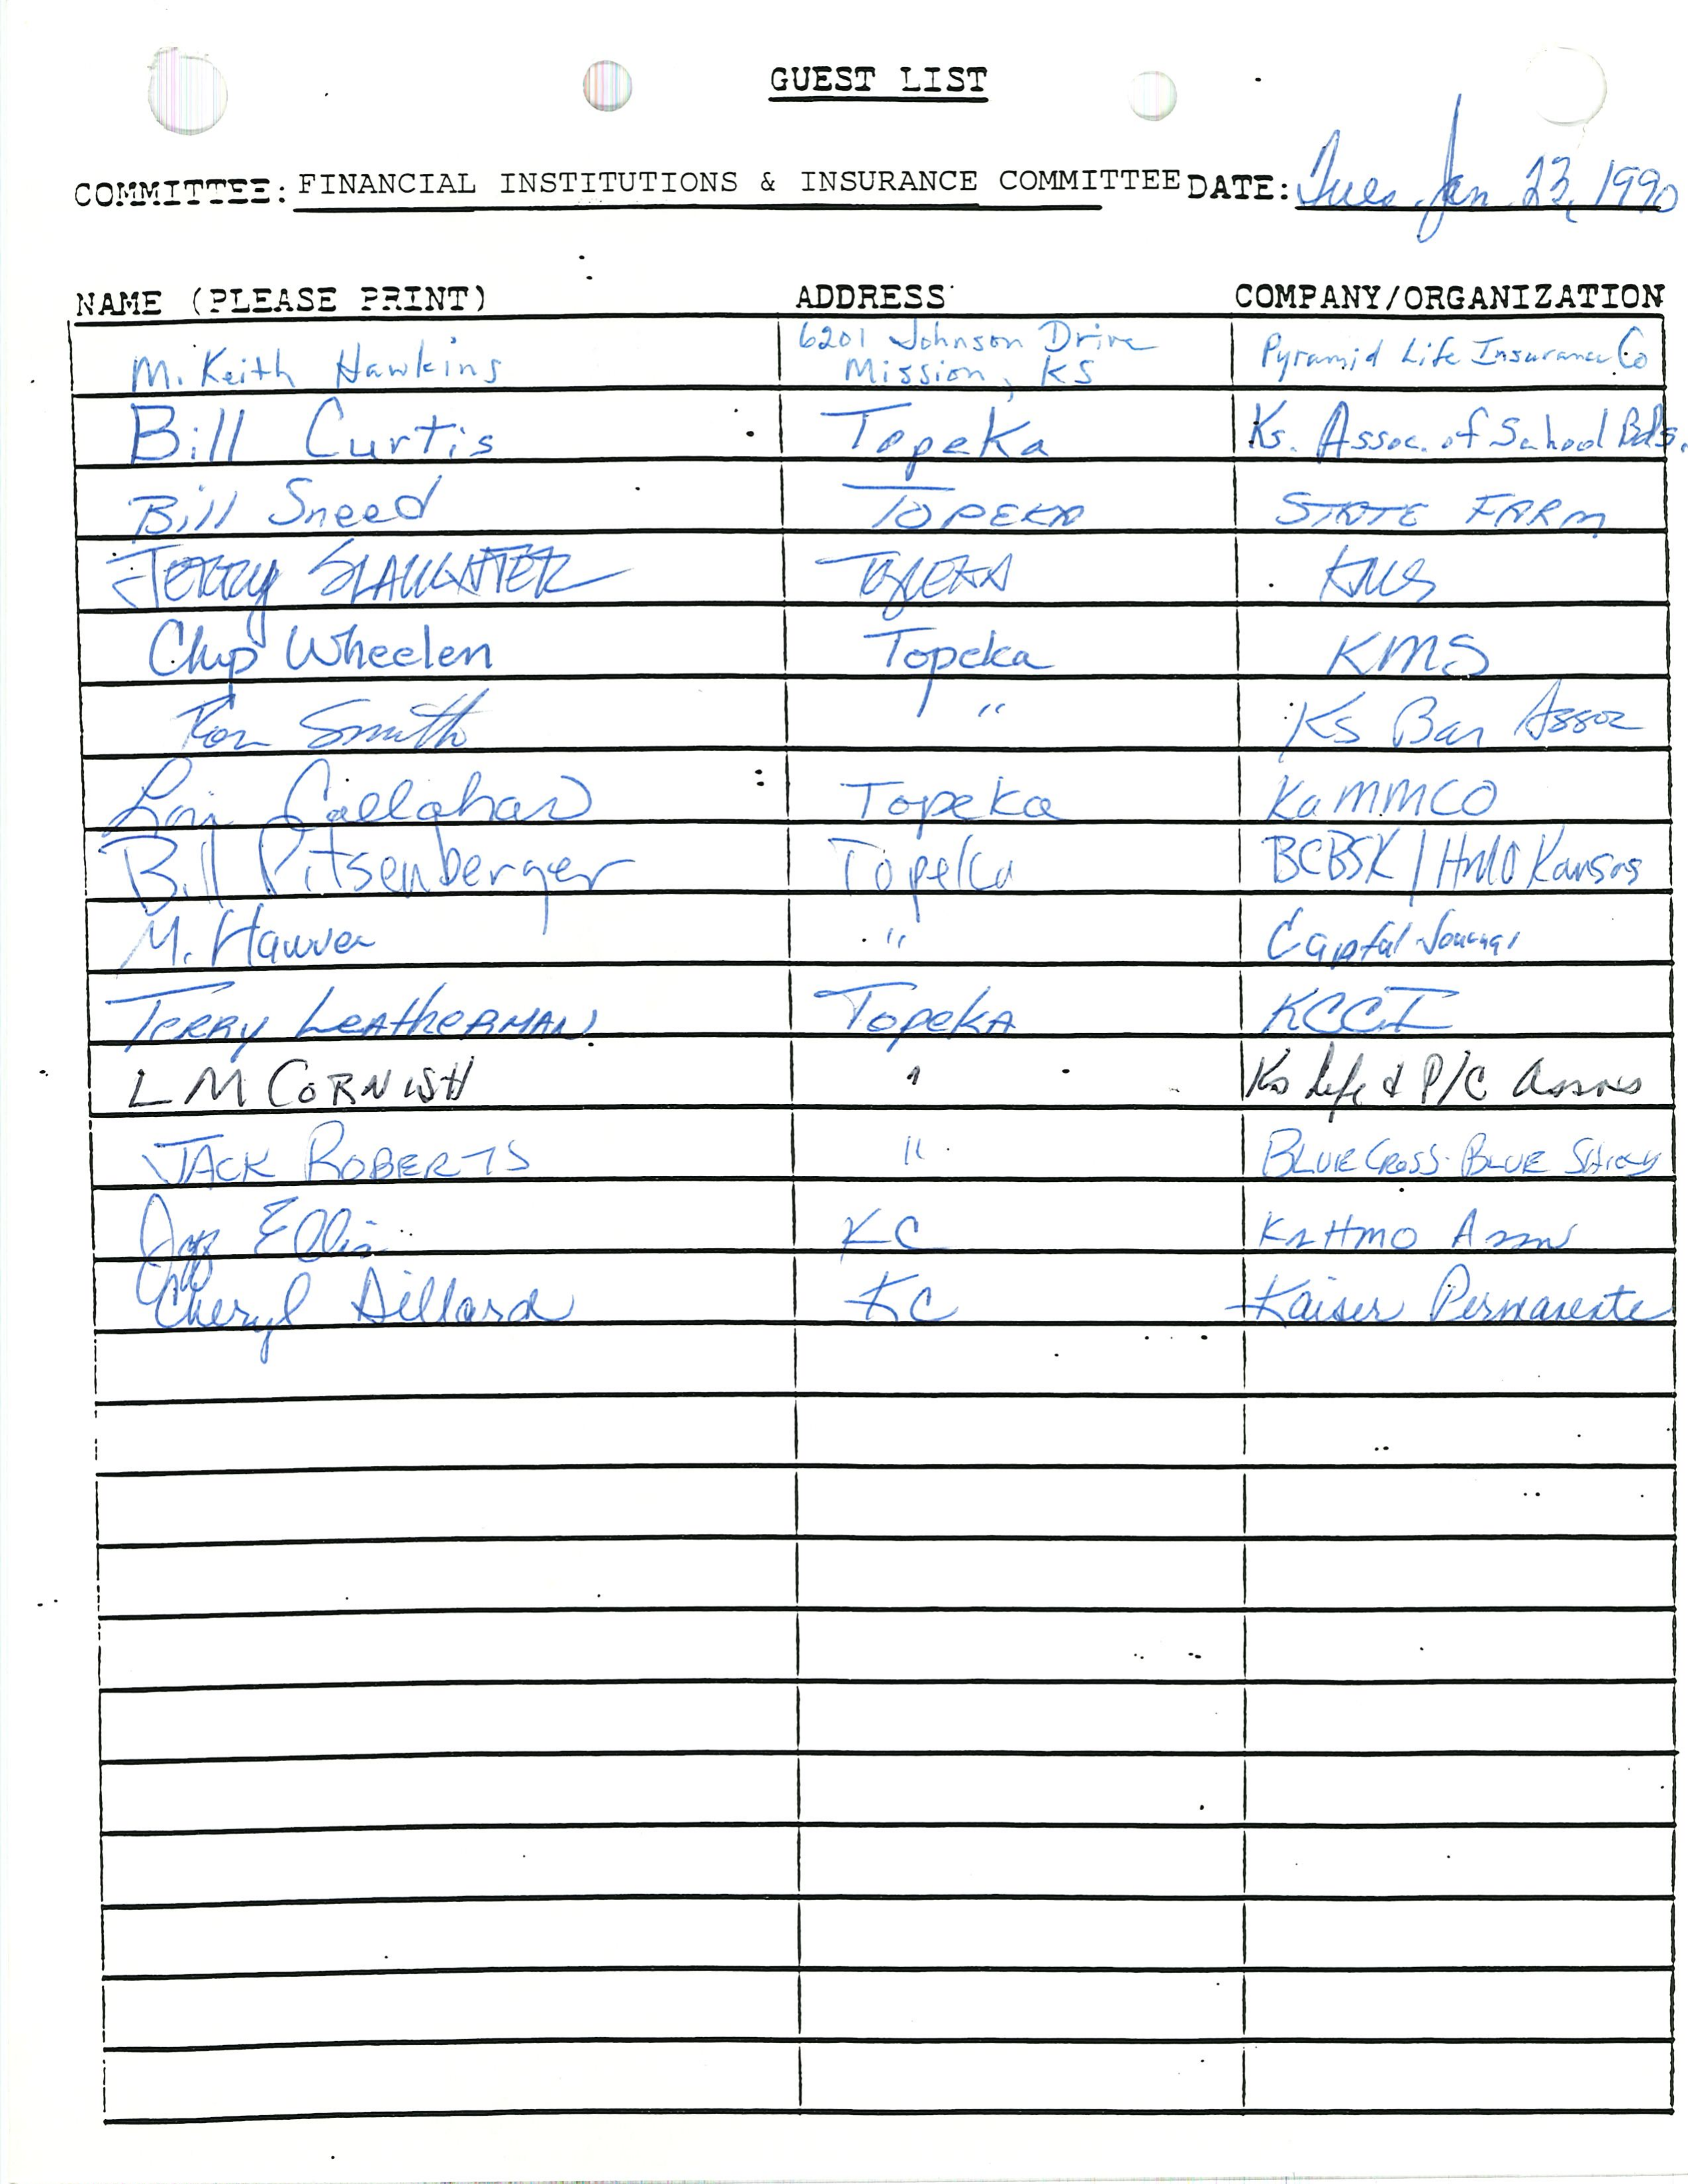 GUEST LIST
COMMITTEE: FINANCIAL INSTITUTIONS & INSURANCE COMMITTEE DATE: Tues, Jan 23, 1990
NAME (PLEASE PRINT) ADDRESS COMPANY/ORGANIZATION
M. Keith Hawkins 6201 Johnson Drive Mission, KS Pyramid Life Insurance Co
Bill Curtis Topeka Ks. Assoc. of School Bds.
Bill Sneed TOPEKA STATE FARM
JERRY SLAUGHTER TOPEKA KMS
Chip Wheelen Topeka KMS
Ron Smith " Ks Bar Assoc
Callahan Topeka KaMMCO
Bill Pitsenberger Topeka BCBSK / HMO Kansas
M. Hauver " Capital Journal
TERRY LEATHERMAN Topeka KCCI
L M CORNISH " Ks Life & P/C Assns
JACK ROBERTS " BLUE CROSS-BLUE SHIELD
Ellis KC Ks HMO Assn
Cheryl Dillard KC Kaiser Permanente